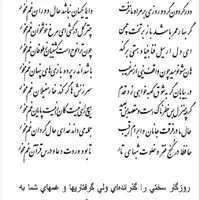 دور گردون گر دو روزی بر مراد ما نگشت دایما یکسان نباشد حال دوران غم مخور
گر بهار عمر باشد باز بر تخت چمن چتر گل در سر کشی ای مرغ خوشخوان غم مخور
ای دل ار سیل فنا بنیاد هستی بر کند چون ترا نوح است کشتیبان ز طوفان غم مخور
هان مشو نومید چون واقف نئی از سر غیب باشد اندر پرده بازی های پنهان غم مخور
در بیابان گر به شوق کعبه خواهی زد قدم سرزنش ها گر کند خار مغیلان غم مخور
گرچه منزل بس خطرناک است و مقصد هیچ راهی نیست کان را نیست پایان غم مخور
حال ما در فرقت جانان و ابرام رقیب جمله میداند خدای حال گردان غم مخور
حافظا در کنج فقر و خلوت شبهای تار تا بود وردت دعا و درس قرآن غم مخور
روزگار سختي را گذرانده‌اي ولي گرفتاريها و غمهاي شما به